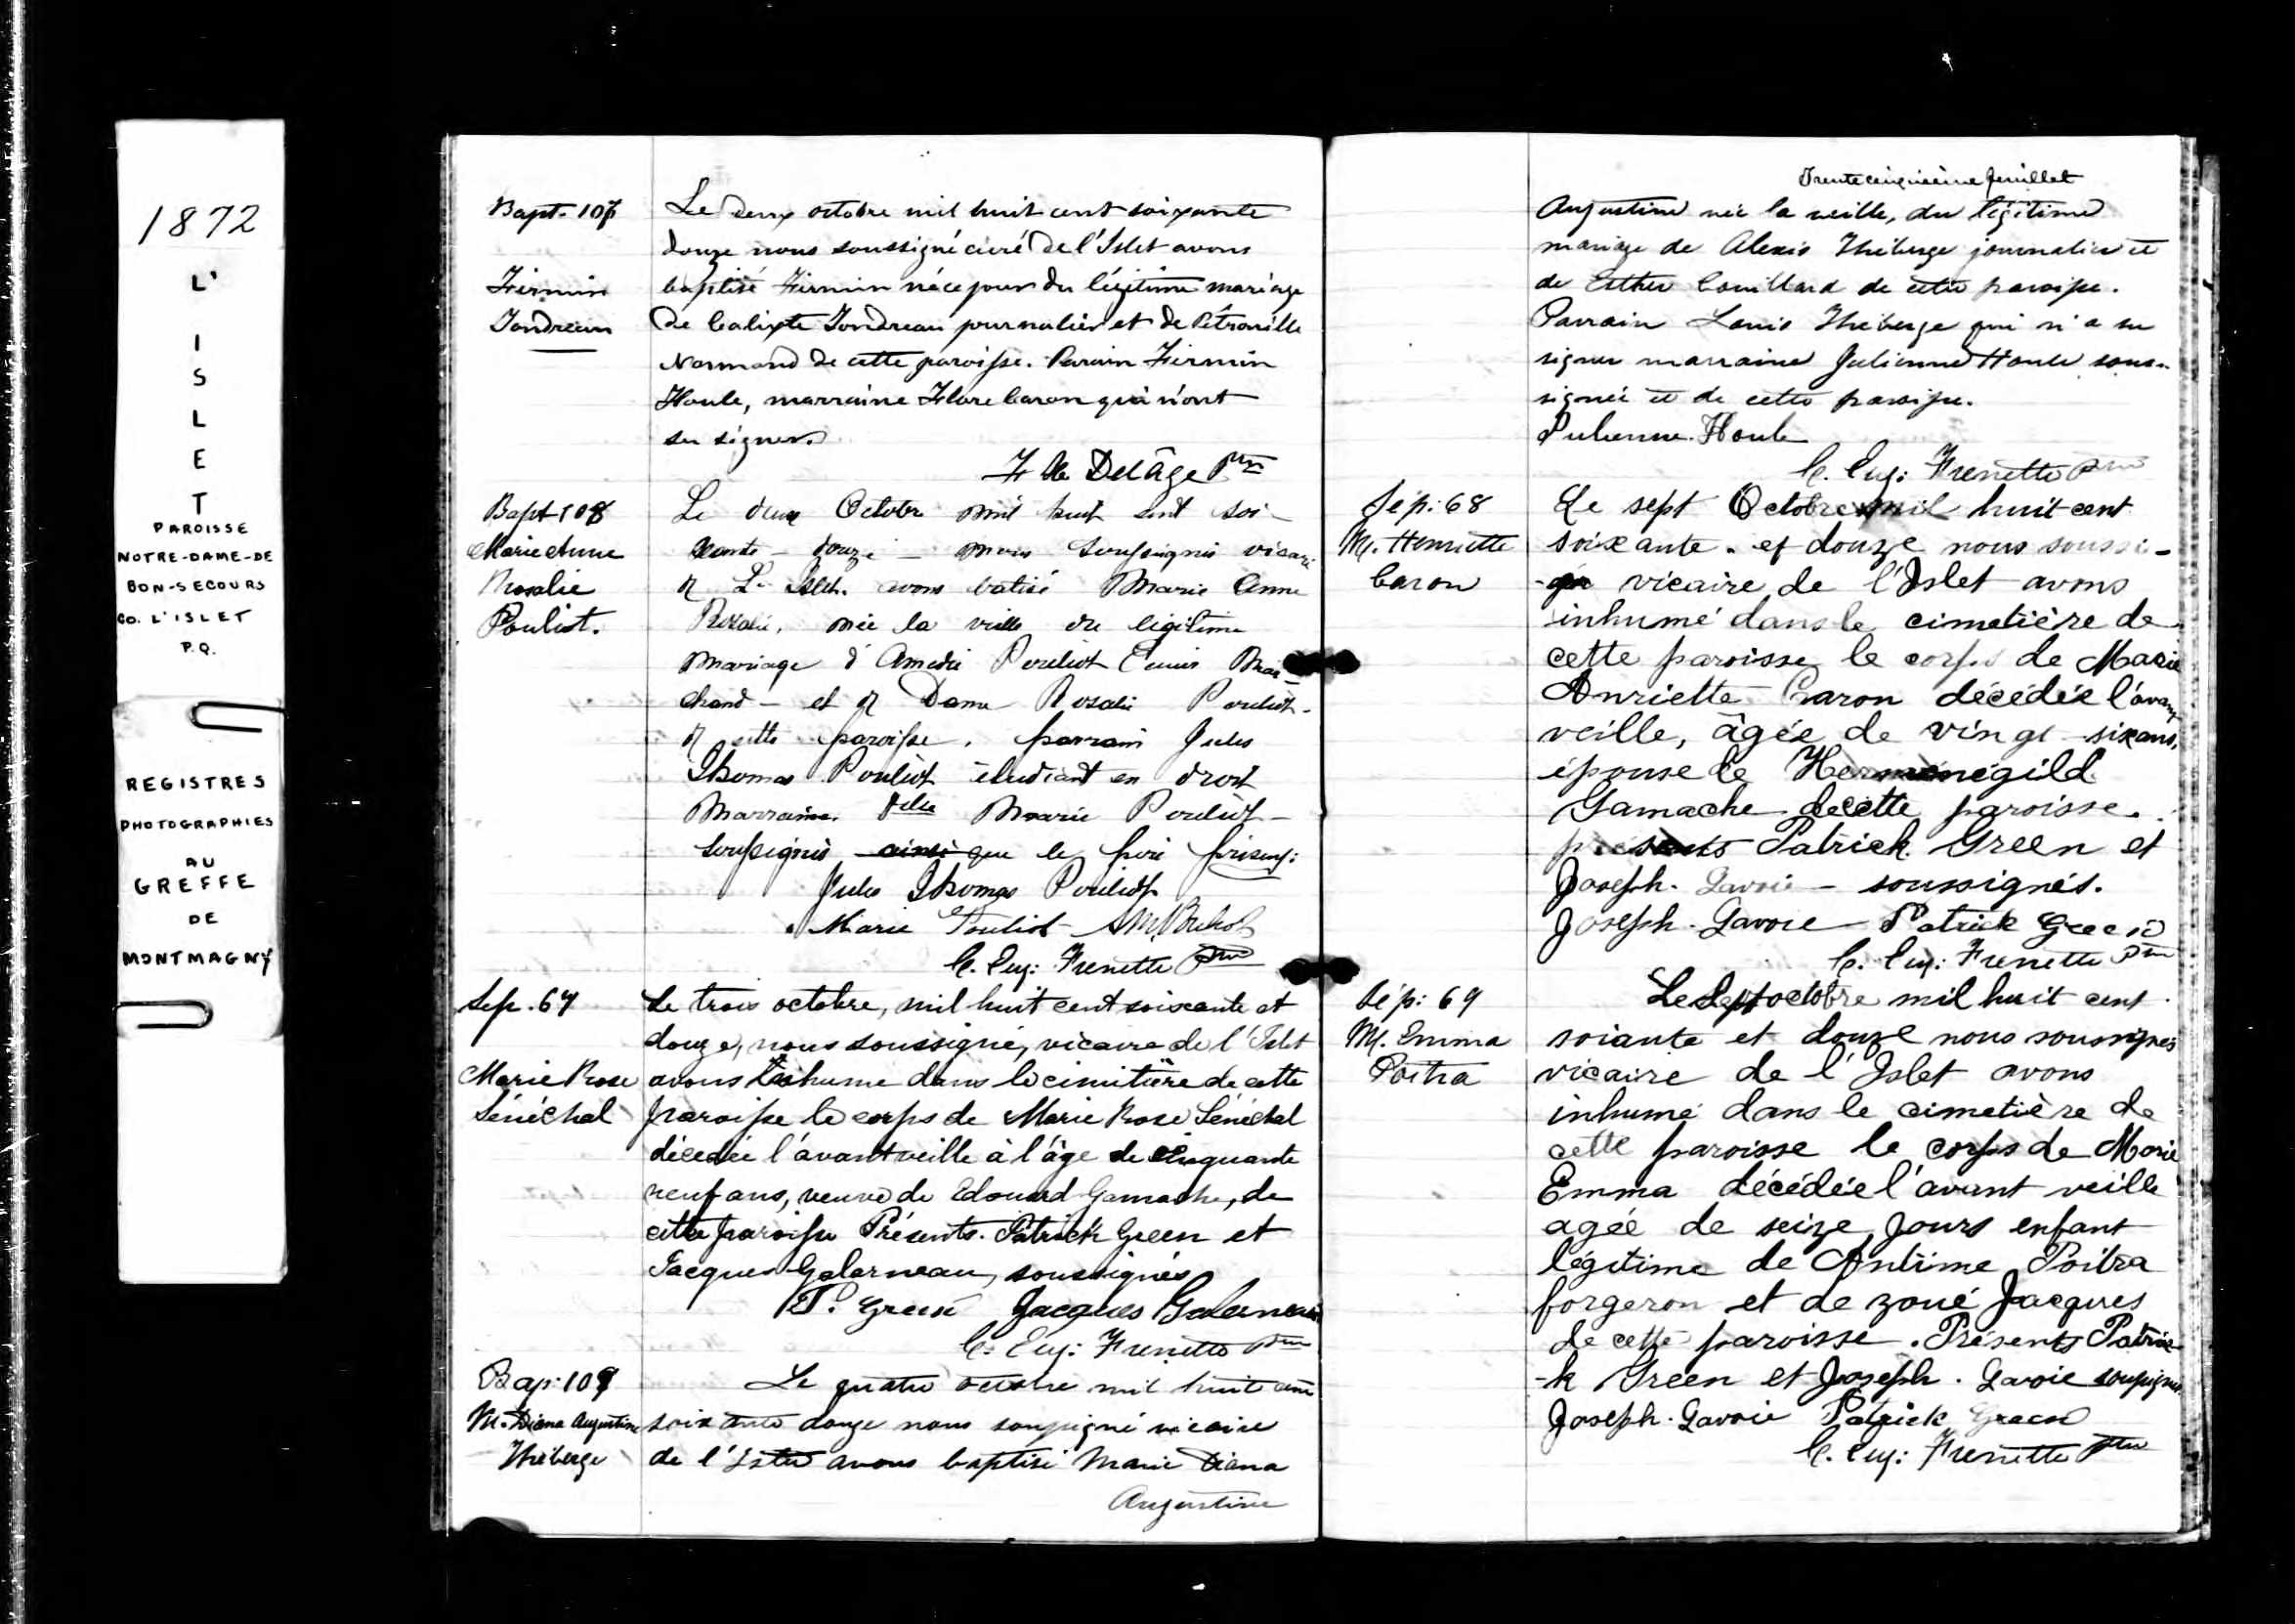 1872
L'
I
S
L
E
T
PAROISSE
NOTRE-DAME-DE
BON-SECOURS
CO. L'ISLET
P.Q.
REGISTRES
PHOTOGRAPHIES
AU
GREFFE
DE
MONTMAGNY
Bapt. 107
Firmin
Jondreau
Le deux octobre mil huit cent soixante
douze nous soussigné curé de l'Islet avons
baptisé Firmin né ce jour du légitime mariage
de Calixte Jondreau journalier et de Pétronille
Normand de cette paroisse. Parain Firmin
Houle, marraine Flore Caron qui n'ont
su signer.
F. X. Delâge Ptre
Bapt 108
Marie Anne
Rosalie
Pouliot.
Le deux Octobre mil huit cent soi-
xante - douze - nous soussignés vicaire
de L'Islet. avons batisé Marie Anne
Rosalie, née la veille du légitime
mariage d'Amedée Pouliot Ecuier Mar-
chand - et de Dame Rosalie Pouliot -
de cette paroisse. parrain Jules
Thomas Pouliot étudiant en droit
Marraine. Delle Marie Pouliot -
soussignés ainsi que le père présent:
Jules Thomas Pouliot
Marie Pouliot A M Pouliot
C. Eug: Frenette Ptre
Sep. 67
Marie Rose
Sénéchal
Le trois octobre, mil huit cent soixante et
douze, nous soussigné, vicaire de l'Islet
avons inhume dans le cimitière de cette
paroisse le corps de Marie Rose Sénéchal
décedée l'avant veille à l'âge de cinquante
neuf ans, veuve de Edouard Gamache, de
cette paroisse Présents. Patrick Green et
Jacques Galarneau, soussignés
P. Green Jacques Galerneau
C. Eug: Frenette Ptre
Bap: 109
M. Diana Augustine
Théberge
Le quatre octobre mil huit cent
soixante douze nous soussigné vicaire
de l'Islet avons baptisé Marie Diana
Augustine
Trente cinquième feuillet
Augustine née la veille, du légitime
mariage de Alexis Théberge journalier et
de Esther Couillard de cette paroisse.
Parrain Louis Théberge qui n'a su
signer marraine Julienne Houle sous-
signée et de cette paroisse.
Julienne Houle
C. Eug: Frenette Ptre
Sép: 68
M. Henriette
Caron
Le sept Octobre mil huit cent
soixante. et douze nous soussi-
-gné vicaire de l'Islet avons
inhumé dans le cimetière de
cette paroisse le corps de Marie
Anriette Caron décédée l'avant
veille, âgée de vingt-six ans,
épouse de Herménégild
Gamache de cette paroisse.
présents Patrick Green et
Joseph. Lavoie - soussignés.
Joseph. Lavoie - Patrick Green
C. Eug: Frenette Ptre
Sép: 69
M. Emma
Poitra
Le Sept octobre mil huit cent
soiante et douze nous soussignés
vicaire de l'Islet avons
inhumé dans le cimetière de
cette paroisse le corps de Marie
Emma décédée l'avant veille
agée de seize jours enfant
légitime de Antime Poitra
forgeron et de zoué Jacques
de cette paroisse. Présents Patric-
-k Green et Joseph. Lavoie soussignés
Joseph. Lavoie Patrick Green
C. Eug: Frenette Ptre